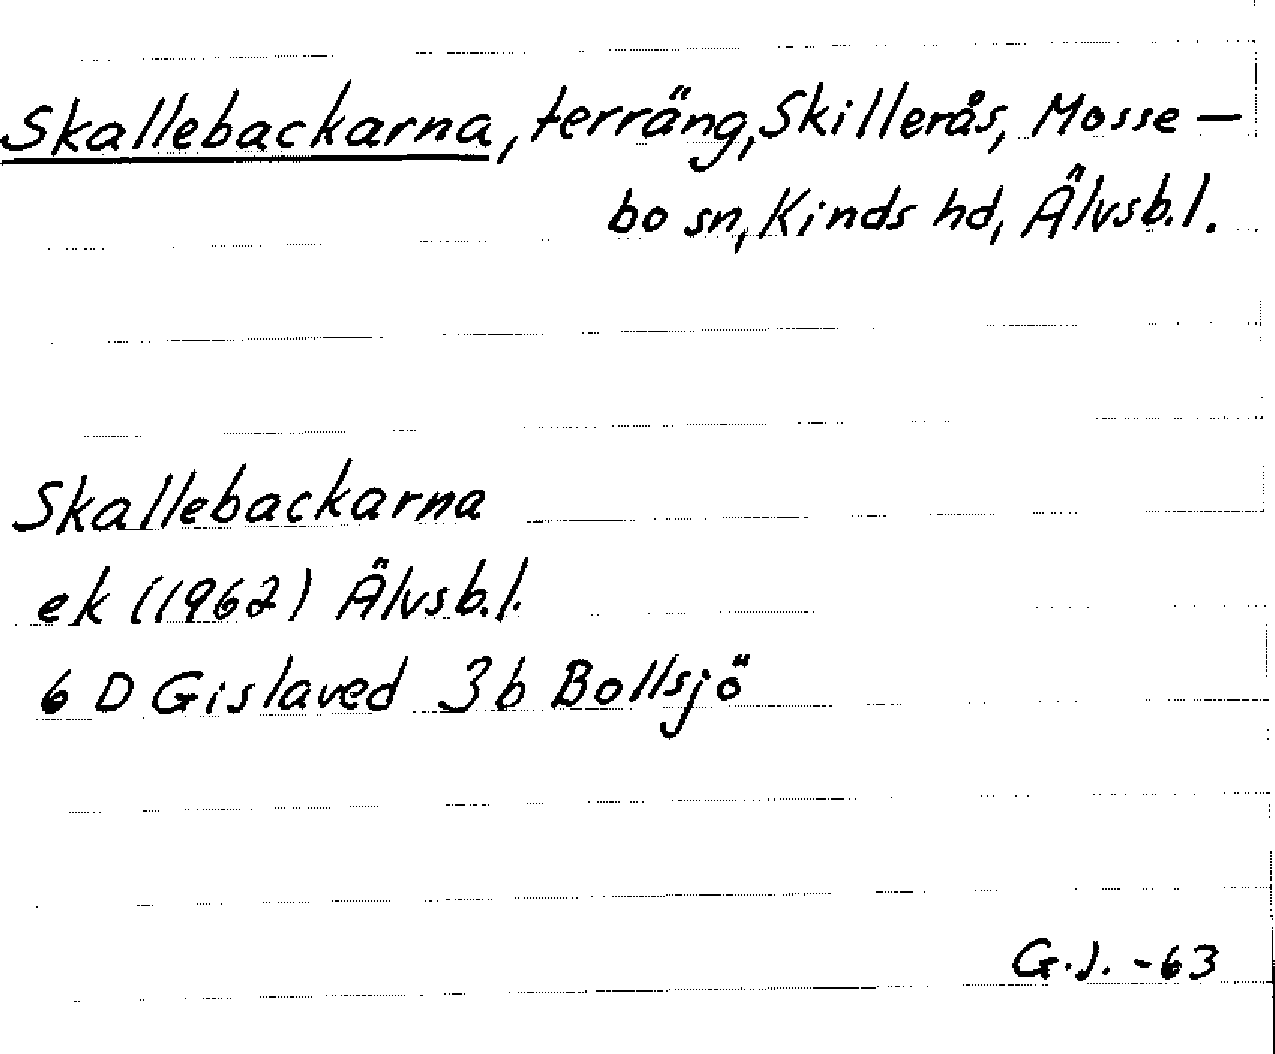 Skallebackarna, terräng, Skillerås, Mosse-
bo sn, Kinds hd, Älvsb.l.
Skallebackarna
ek (1962) Älvsb.l.
6 D Gislaved 3b Bollsjö
G.J. -63